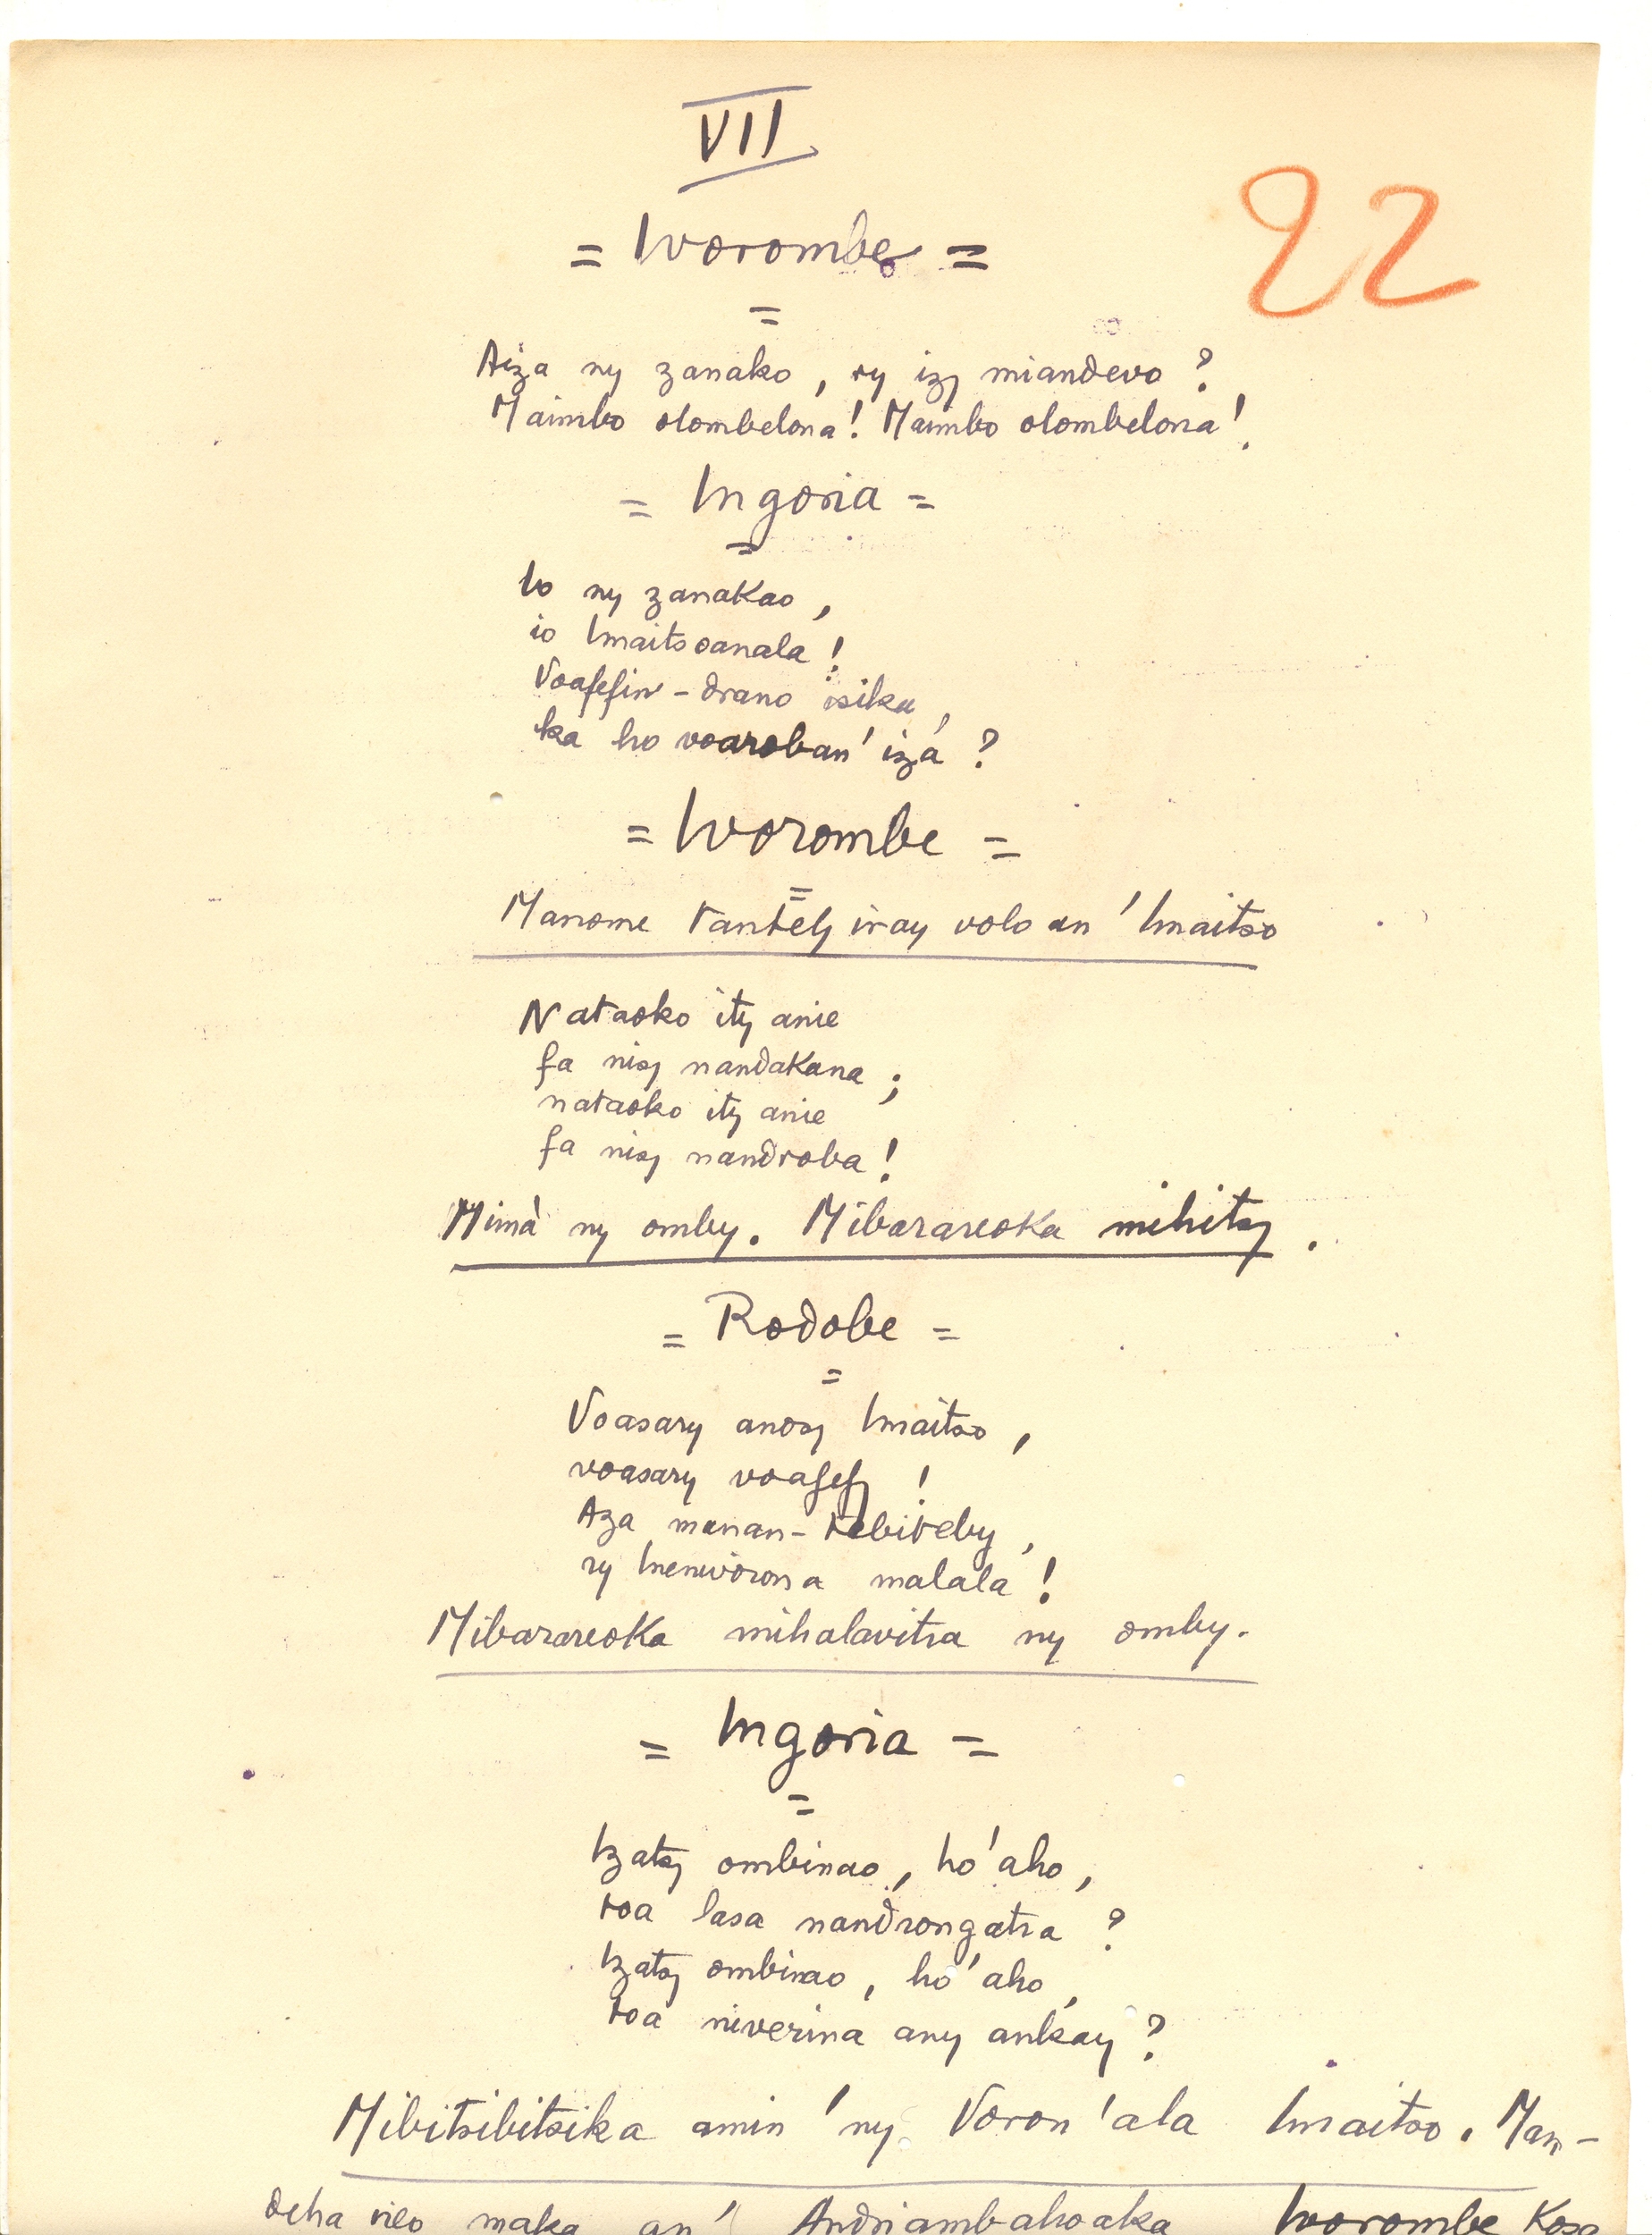 VII
22
= Ivorombe =
=
Aiza ny zanako, ry izy miandevo ?
Maimbo olombelona! Maimbo olombelona!
= Ingoria =
=
Io ny zanakao,
io Imaitsoanala !
Voafefin-drano isika,
ka ho voaroban' iza ?
= Ivorombe =
=
Manome tantely iray volo an 'Imaitso
Nataoko ity anie
fa nisy nandakana ;
nataoko ity anie
fa nisy nandroba !
Mimà ny omby. Mibarareoka mihitsy.
= Rodobe =
=
Voasary anosy Imaitso,
voasary voafefy !
Aza manan-tebiteby,
ry Inenivorona malala !
Mibarareoka mihalavitra ny omby.
= Ingoria =
=
Izatsy ombinao, ho 'aho,
toa lasa nandrongatra ?
Izatsy ombinao, ho 'aho,
toa niverina any ankay ?
Mibitsibitsika amin 'ny Voron 'ala Imaitso. Man-
deha ireo maka an' Andriambahoaka Ivorombe kosa